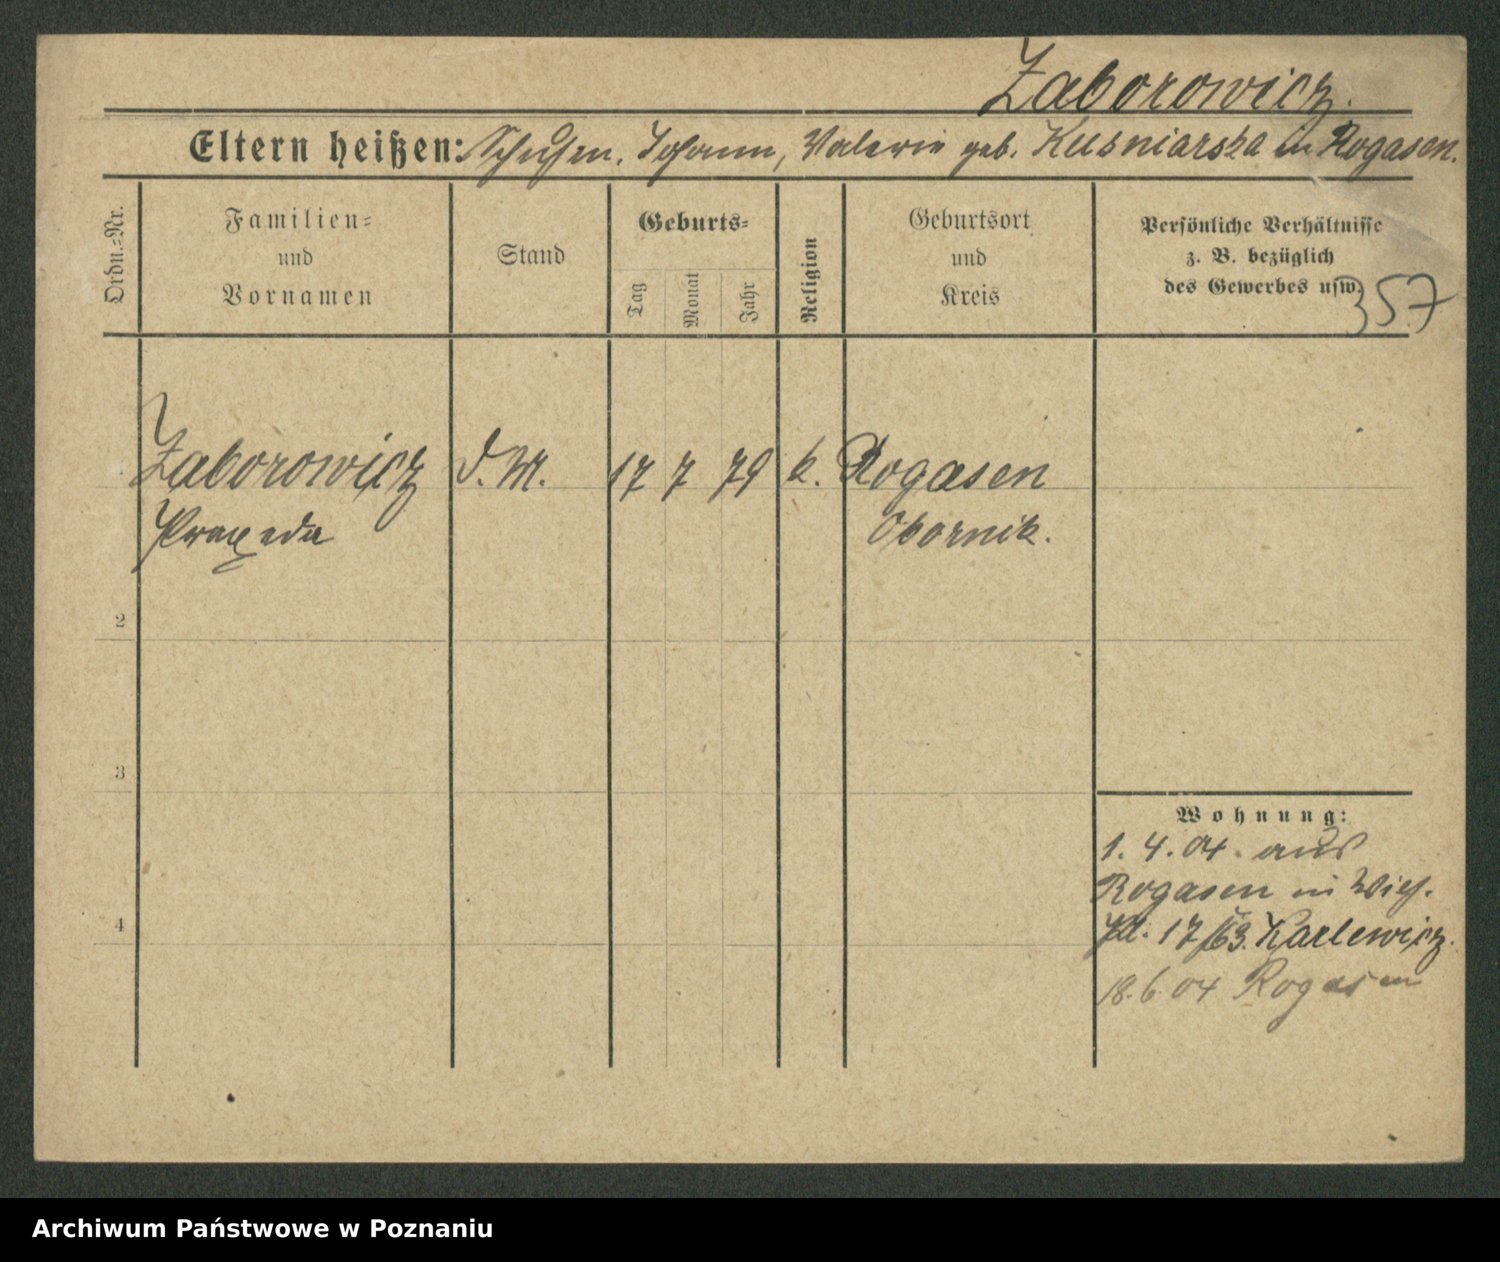 Zaborowicz.
Eltern heißen: Johann, Valerie geb. Kusniarska in Rogasen.
Ordn.=Nr.
Familien=
und
Vornamen
Stand
Geburts=
Tag
Monat
Jahr
Religion
Geburtsort
und
Kreis
Persönliche Verhältnisse
z. B. bezüglich
des Gewerbes usw.
357
Zaborowicz d. M. 17 7 79 k. Rogasen
Praxeda Obornik.
2
3
4
Wohnung:
1. 4. 04. aus
Rogasen in
17 Karlewicz.
18. 6. 04 Rogasen
Archiwum Państwowe w Poznaniu